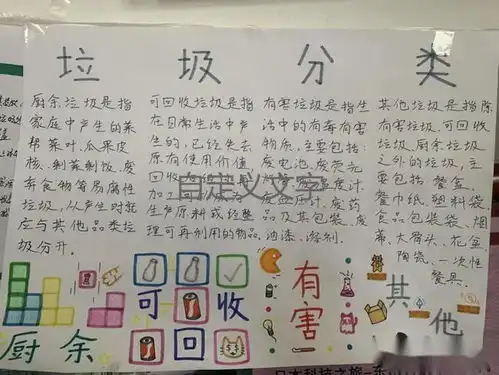 垃 圾 分 类
厨余垃圾是指
家庭中产生的菜
帮菜叶、瓜果皮
核、剩菜剩饭、废
弃食物等易腐性
垃圾,从产生时就
应与其他品类垃
圾分开。
可回收垃圾是指
在日常生活中产
生的,已经失去
原有使用价值
生产原料或经整
理可再利用的物品
有害垃圾是指生
活中的有毒有害
物质,主要包括:
废电池、废荧光
品及其包装、废
油漆、溶剂。
其他垃圾是指除
有害垃圾、可回收
垃圾、厨余垃圾
之外的垃圾,主
要包括:餐盒、
餐巾纸、塑料袋
食品包装袋、烟
蒂、大骨头、花盆、
陶瓷、一次性
餐具。
自定义文字
厨余
可收
回
有害
其他